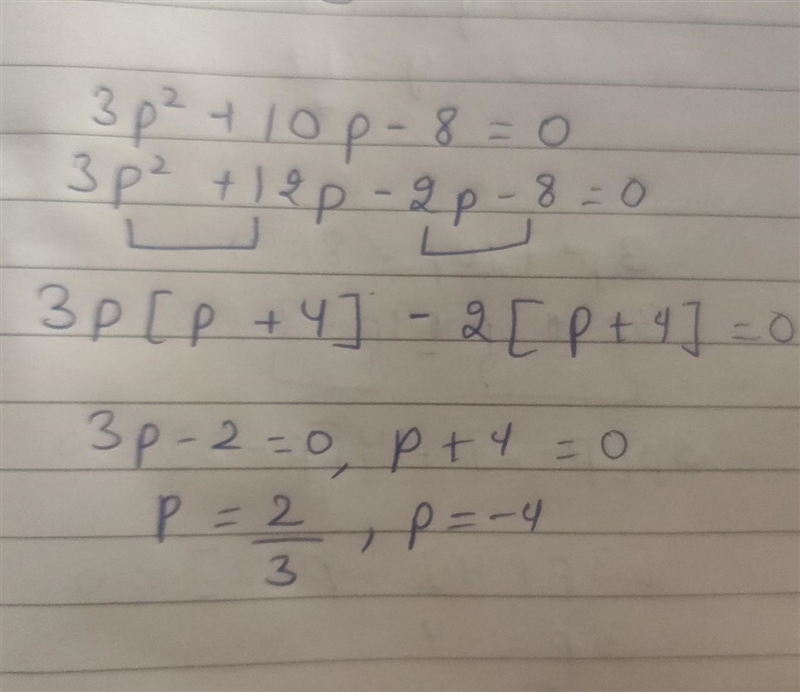 3p² + 10p - 8 = 0
3p² + 12p - 2p - 8 = 0
3p [ p + 4 ] - 2 [ p + 4 ] = 0
3p - 2 = 0, p + 4 = 0
p = 2/3 , p = -4